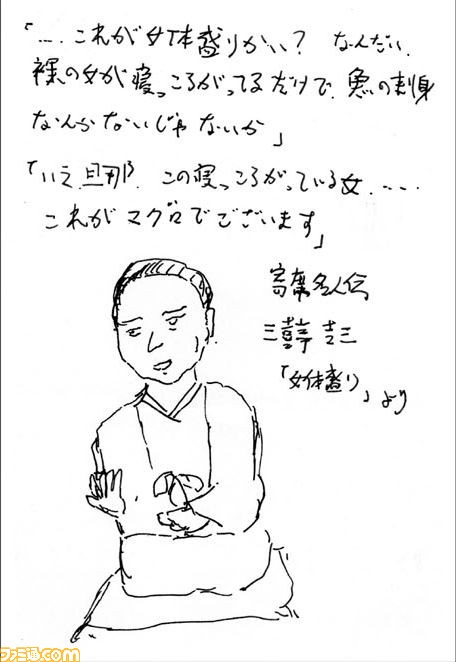 「‥‥これが女体盛りかい? なんだい、
裸の女が寝っころがってるだけで、魚の刺身
なんかないじゃないか」
「いえ、旦那、この寝っころがっている女、‥‥
これがマグロでございます」
寄席名人伝
三喜亭 吉三
「女体盛り」より
ファミ通.com